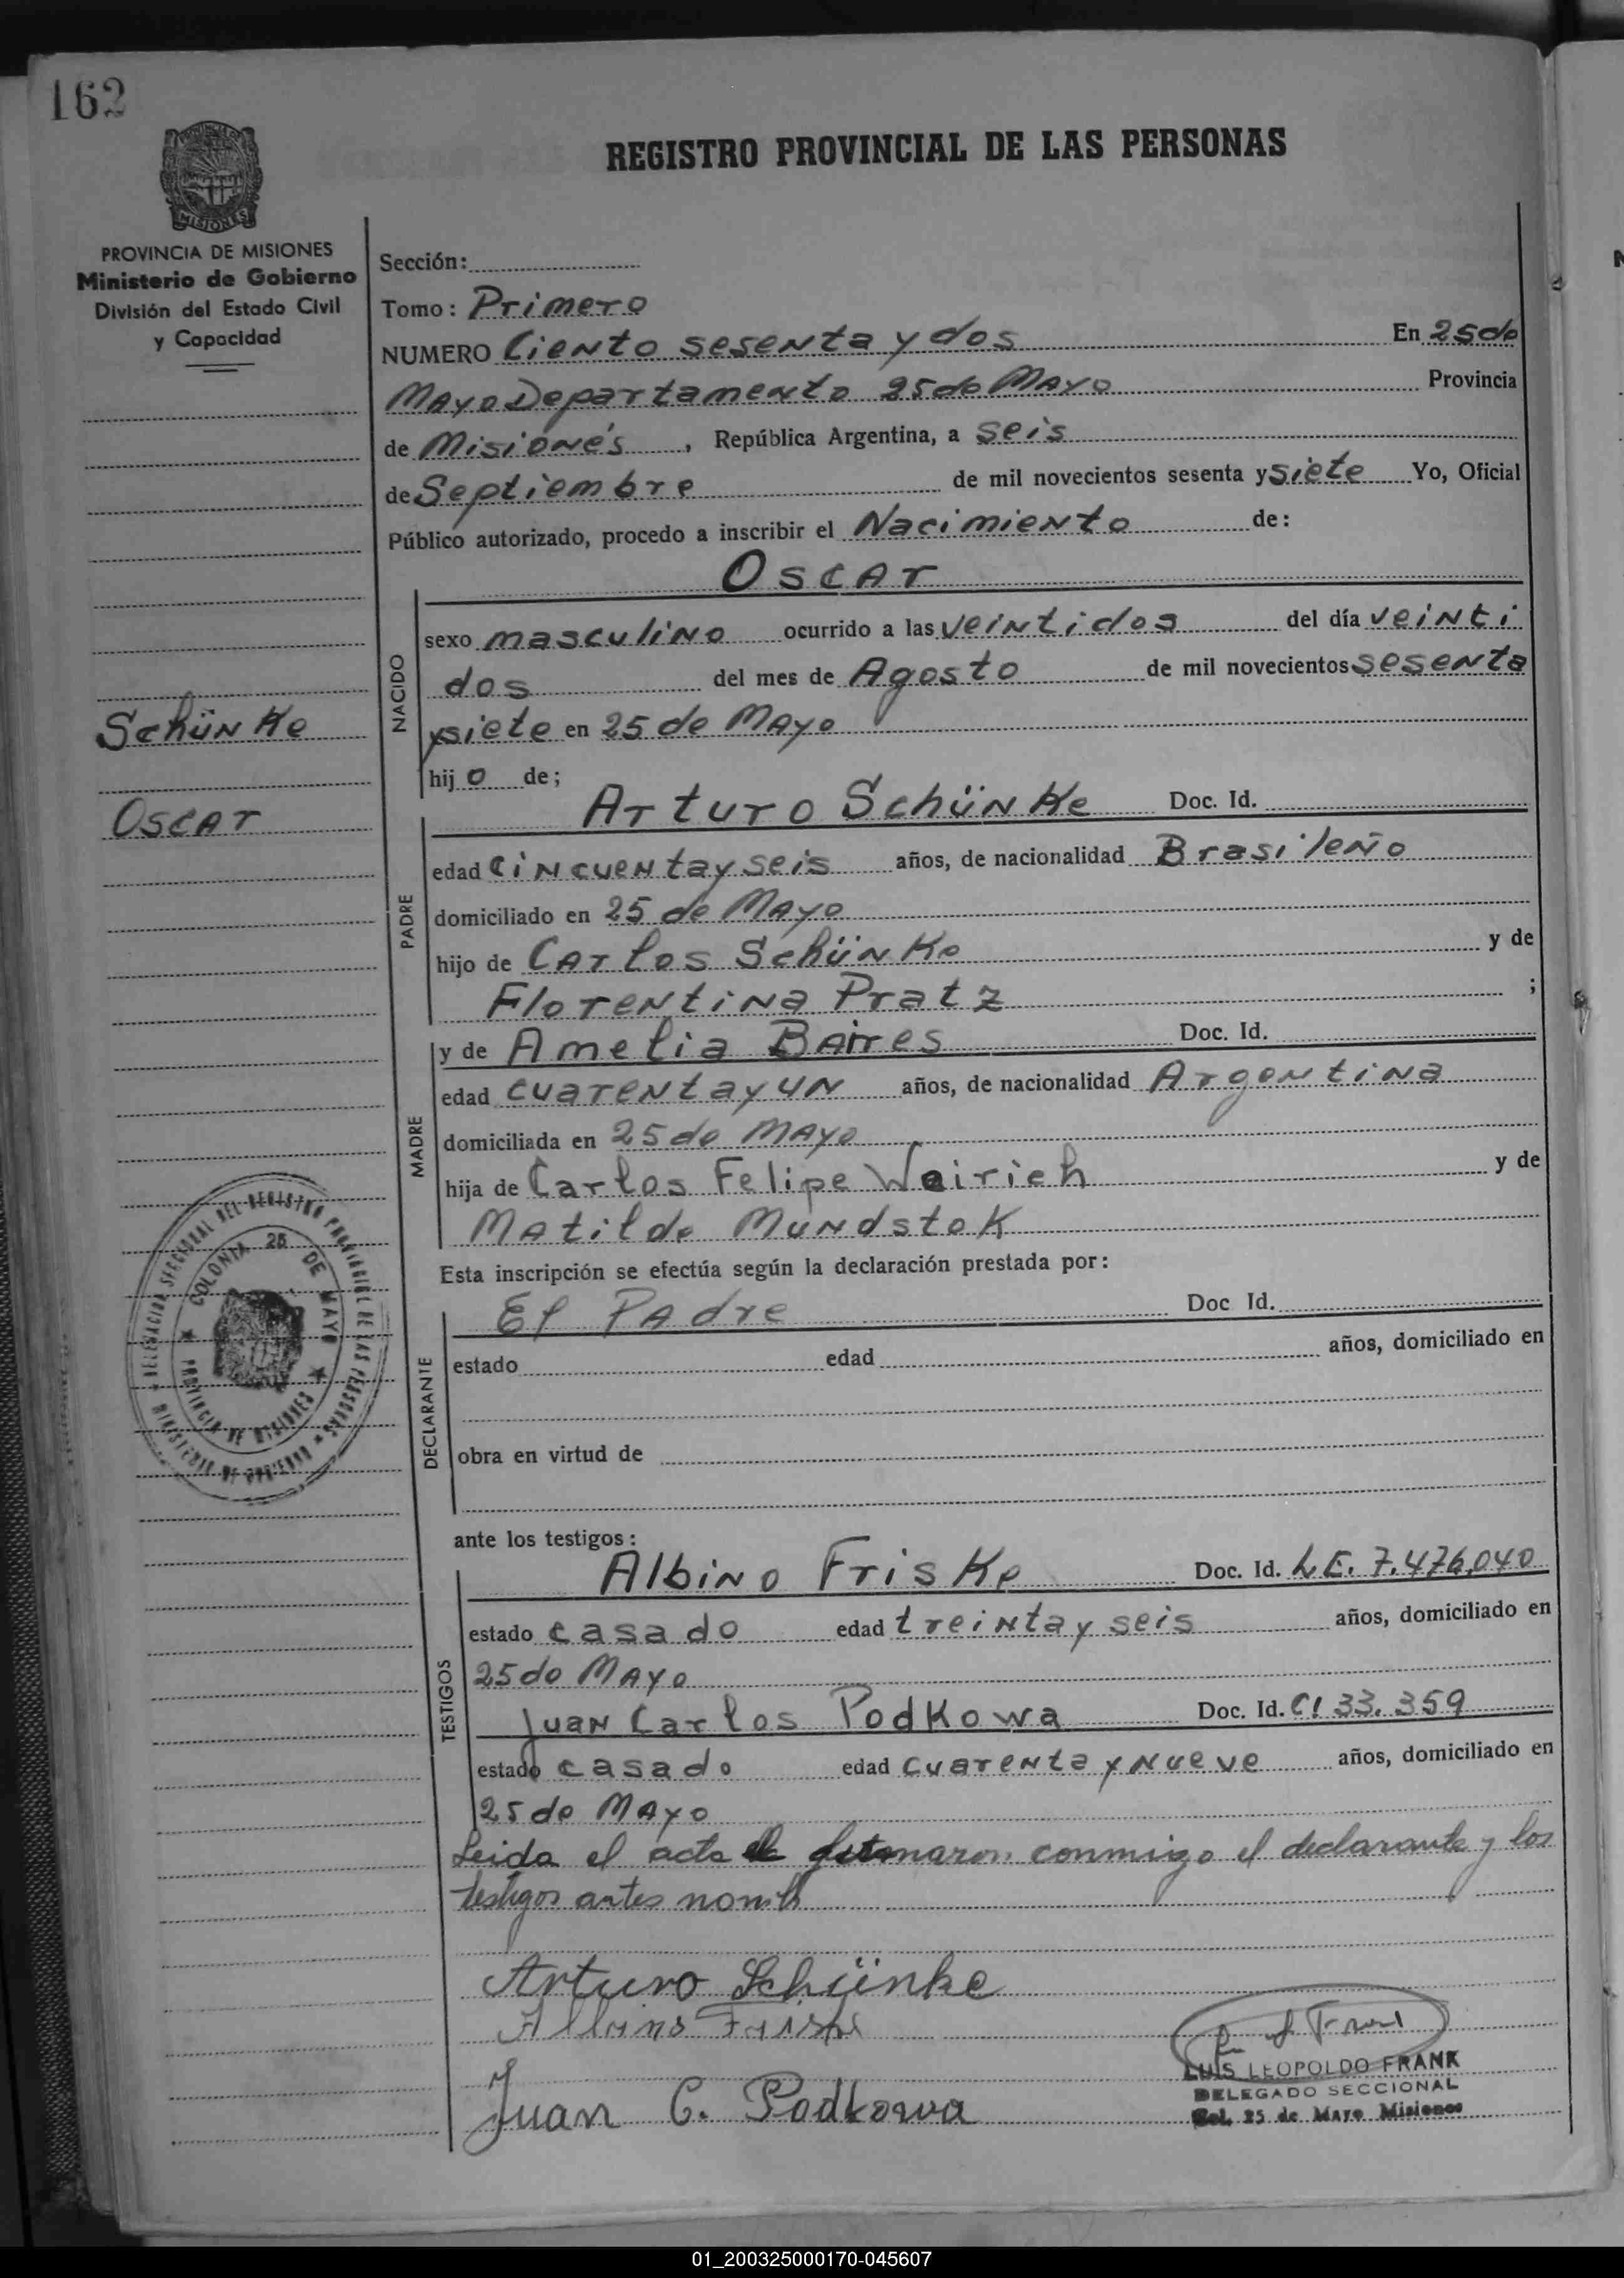 162
REGISTRO PROVINCIAL DE LAS PERSONAS
MISIONES
PROVINCIA DE MISIONES
Ministerio de Gobierno
División del Estado Civil
y Capacidad
Sección:
Tomo: Primero
NUMERO Ciento sesenta y dos En 25 de
Mayo Departamento 25 de Mayo Provincia
de Misiones, República Argentina, a seis
de Septiembre de mil novecientos sesenta y siete Yo, Oficial
Público autorizado, procedo a inscribir el Nacimiento de:
Oscar
NACIDO
sexo masculino ocurrido a las veintidos del día veinti
dos del mes de Agosto de mil novecientos sesenta
y siete en 25 de Mayo
hijo de;
Schünke
Oscar
Arturo Schünke Doc. Id.
PADRE
edad cincuenta y seis años, de nacionalidad Brasileño
domiciliado en 25 de Mayo
hijo de Carlos Schünke y de
Florentina Pratz ;
y de Amelia Doc. Id.
MADRE
edad cuarenta y un años, de nacionalidad Argentina
domiciliada en 25 de Mayo
hija de Carlos Felipe Weirich y de
Matilde Mundstok
Esta inscripción se efectúa según la declaración prestada por:
El Padre Doc Id.
DECLARANTE
estado edad años, domiciliado en
obra en virtud de
DELEGACION SECCIONAL DEL REGISTRO PROVINCIAL DE LAS PERSONAS
MINISTERIO DE GOBIERNO
COLONIA 25 DE MAYO
PROVINCIA DE MISIONES
ante los testigos:
Albino Friske Doc. Id. L.E. 7.476.040
TESTIGOS
estado casado edad treinta y seis años, domiciliado en
25 de Mayo
Juan Carlos Podkowa Doc. Id. CI 33.359
estado casado edad cuarenta y nueve años, domiciliado en
25 de Mayo
Leida el acta conmigo el declarante y los
testigos antes
Arturo Schünke
Albino Friske
Juan C. Podkowa
LUIS LEOPOLDO FRANK
DELEGADO SECCIONAL
Col. 25 de Mayo Misiones
01_200325000170-045607